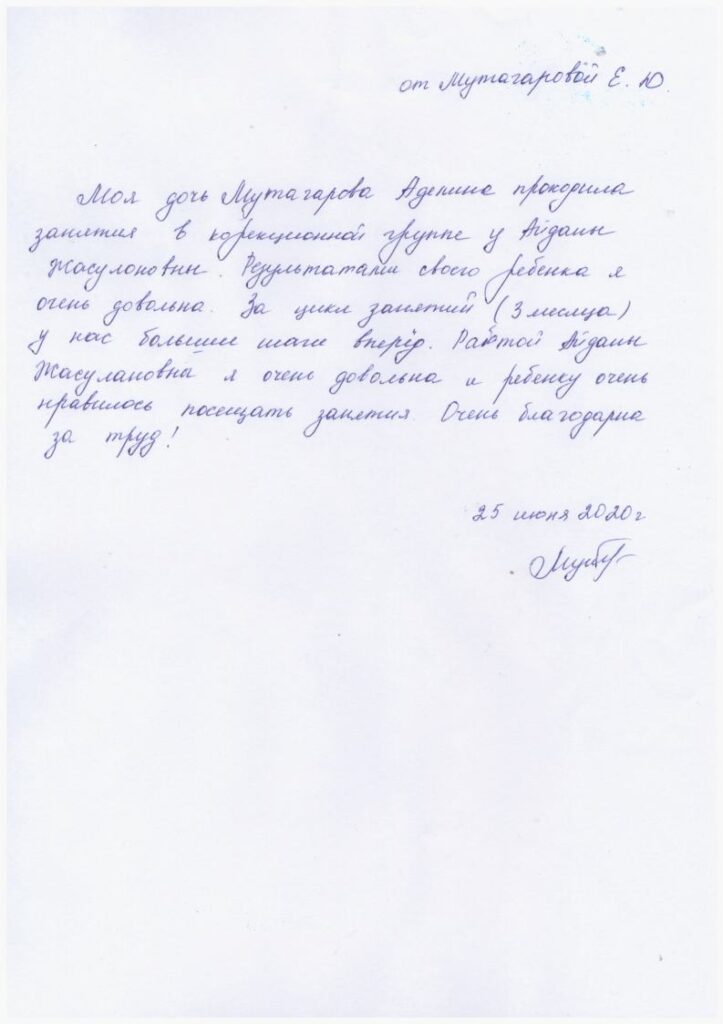 от Мутагаровой Е. Ю.
Моя дочь Мутагарова Аделина проходила
занятия в корекционной группе у Айданы
Жасулоновны. Результатами своего ребенка я
очень довольна. За цикл занятий (3 месяца)
у нас большие шаги вперёд. Работой Айданы
Жасулановны я очень довольна и ребенку очень
нравилось посещать занятия. Очень благодарна
за труд!
25 июня 2020г